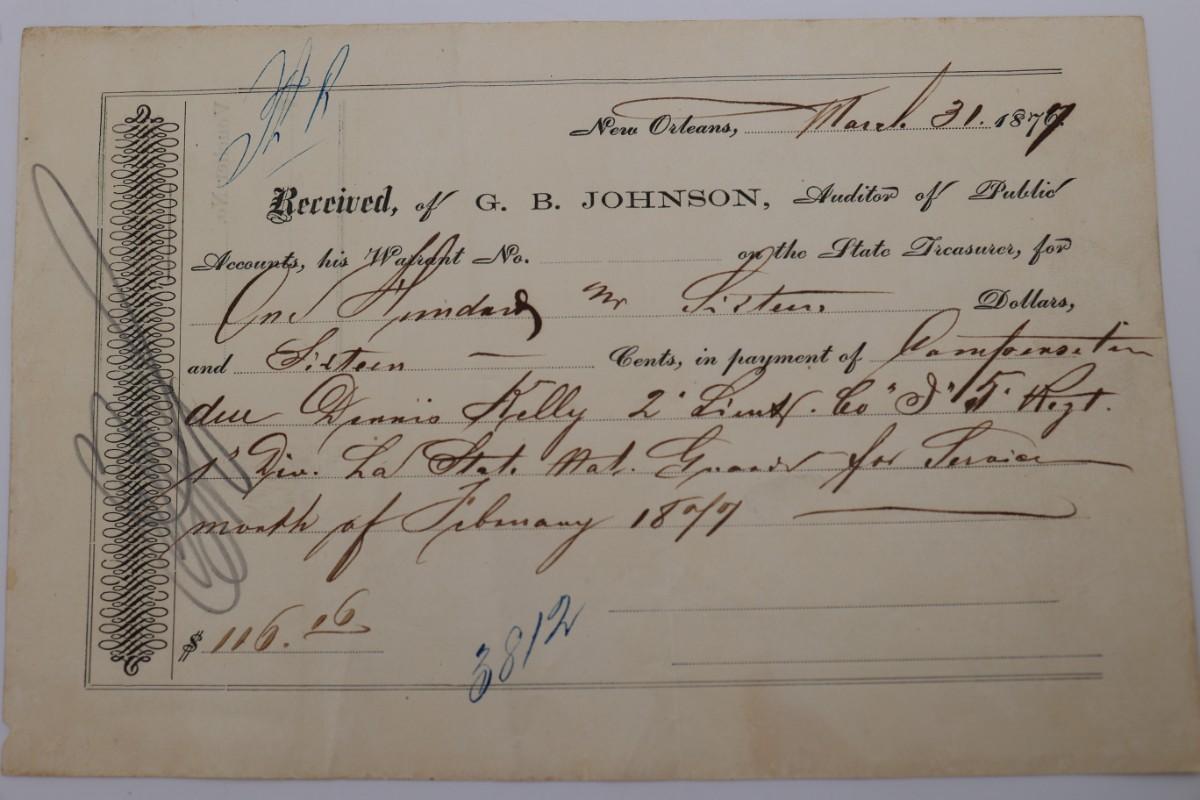 New Orleans, March 31. 1877
Received, of G. B. JOHNSON, Auditor of Public
Accounts, his Warrant No. on the State Treasurer, for
One Hundred Sixteen Dollars,
and Sixteen — Cents, in payment of Compensation
due Dennis Kelly 2' Lieut. Co "I" 5' Regt.
1st Div. La State Nat. Guards for Service
month of February 1877
$ 116.16
3812